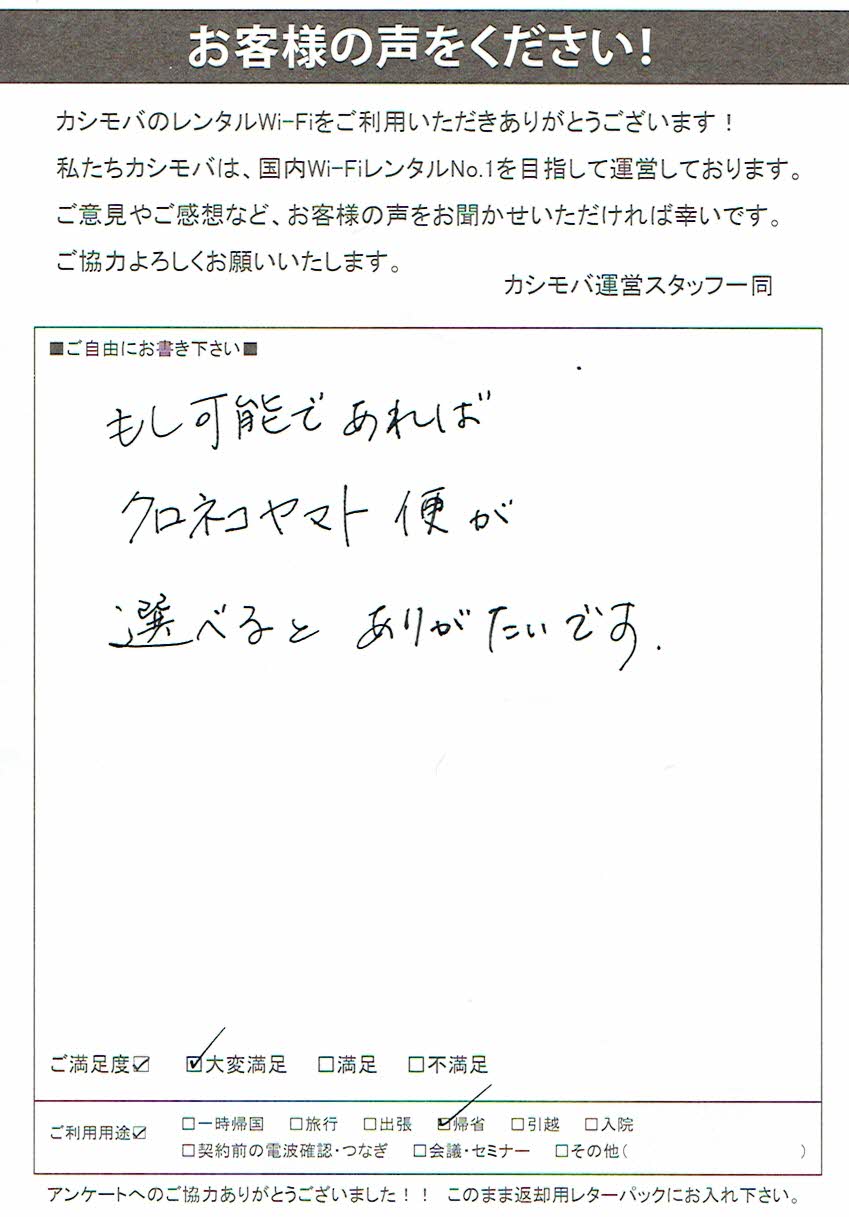 お客様の声をください!
カシモバのレンタルWi-Fiをご利用いただきありがとうございます!
私たちカシモバは、国内Wi-FiレンタルNo.1を目指して運営しております。
ご意見やご感想など、お客様の声をお聞かせいただければ幸いです。
ご協力よろしくお願いいたします。
カシモバ運営スタッフ一同
■ご自由にお書き下さい■
もし可能であれば
クロネコヤマト便が
選べるとありがたいです.
ご満足度☑ ☑大変満足 □満足 □不満足
ご利用用途☑ □一時帰国 □旅行 □出張 ☑帰省 □引越 □入院
□契約前の電波確認・つなぎ □会議・セミナー □その他( )
アンケートへのご協力ありがとうございました!! このまま返却用レターパックにお入れ下さい。